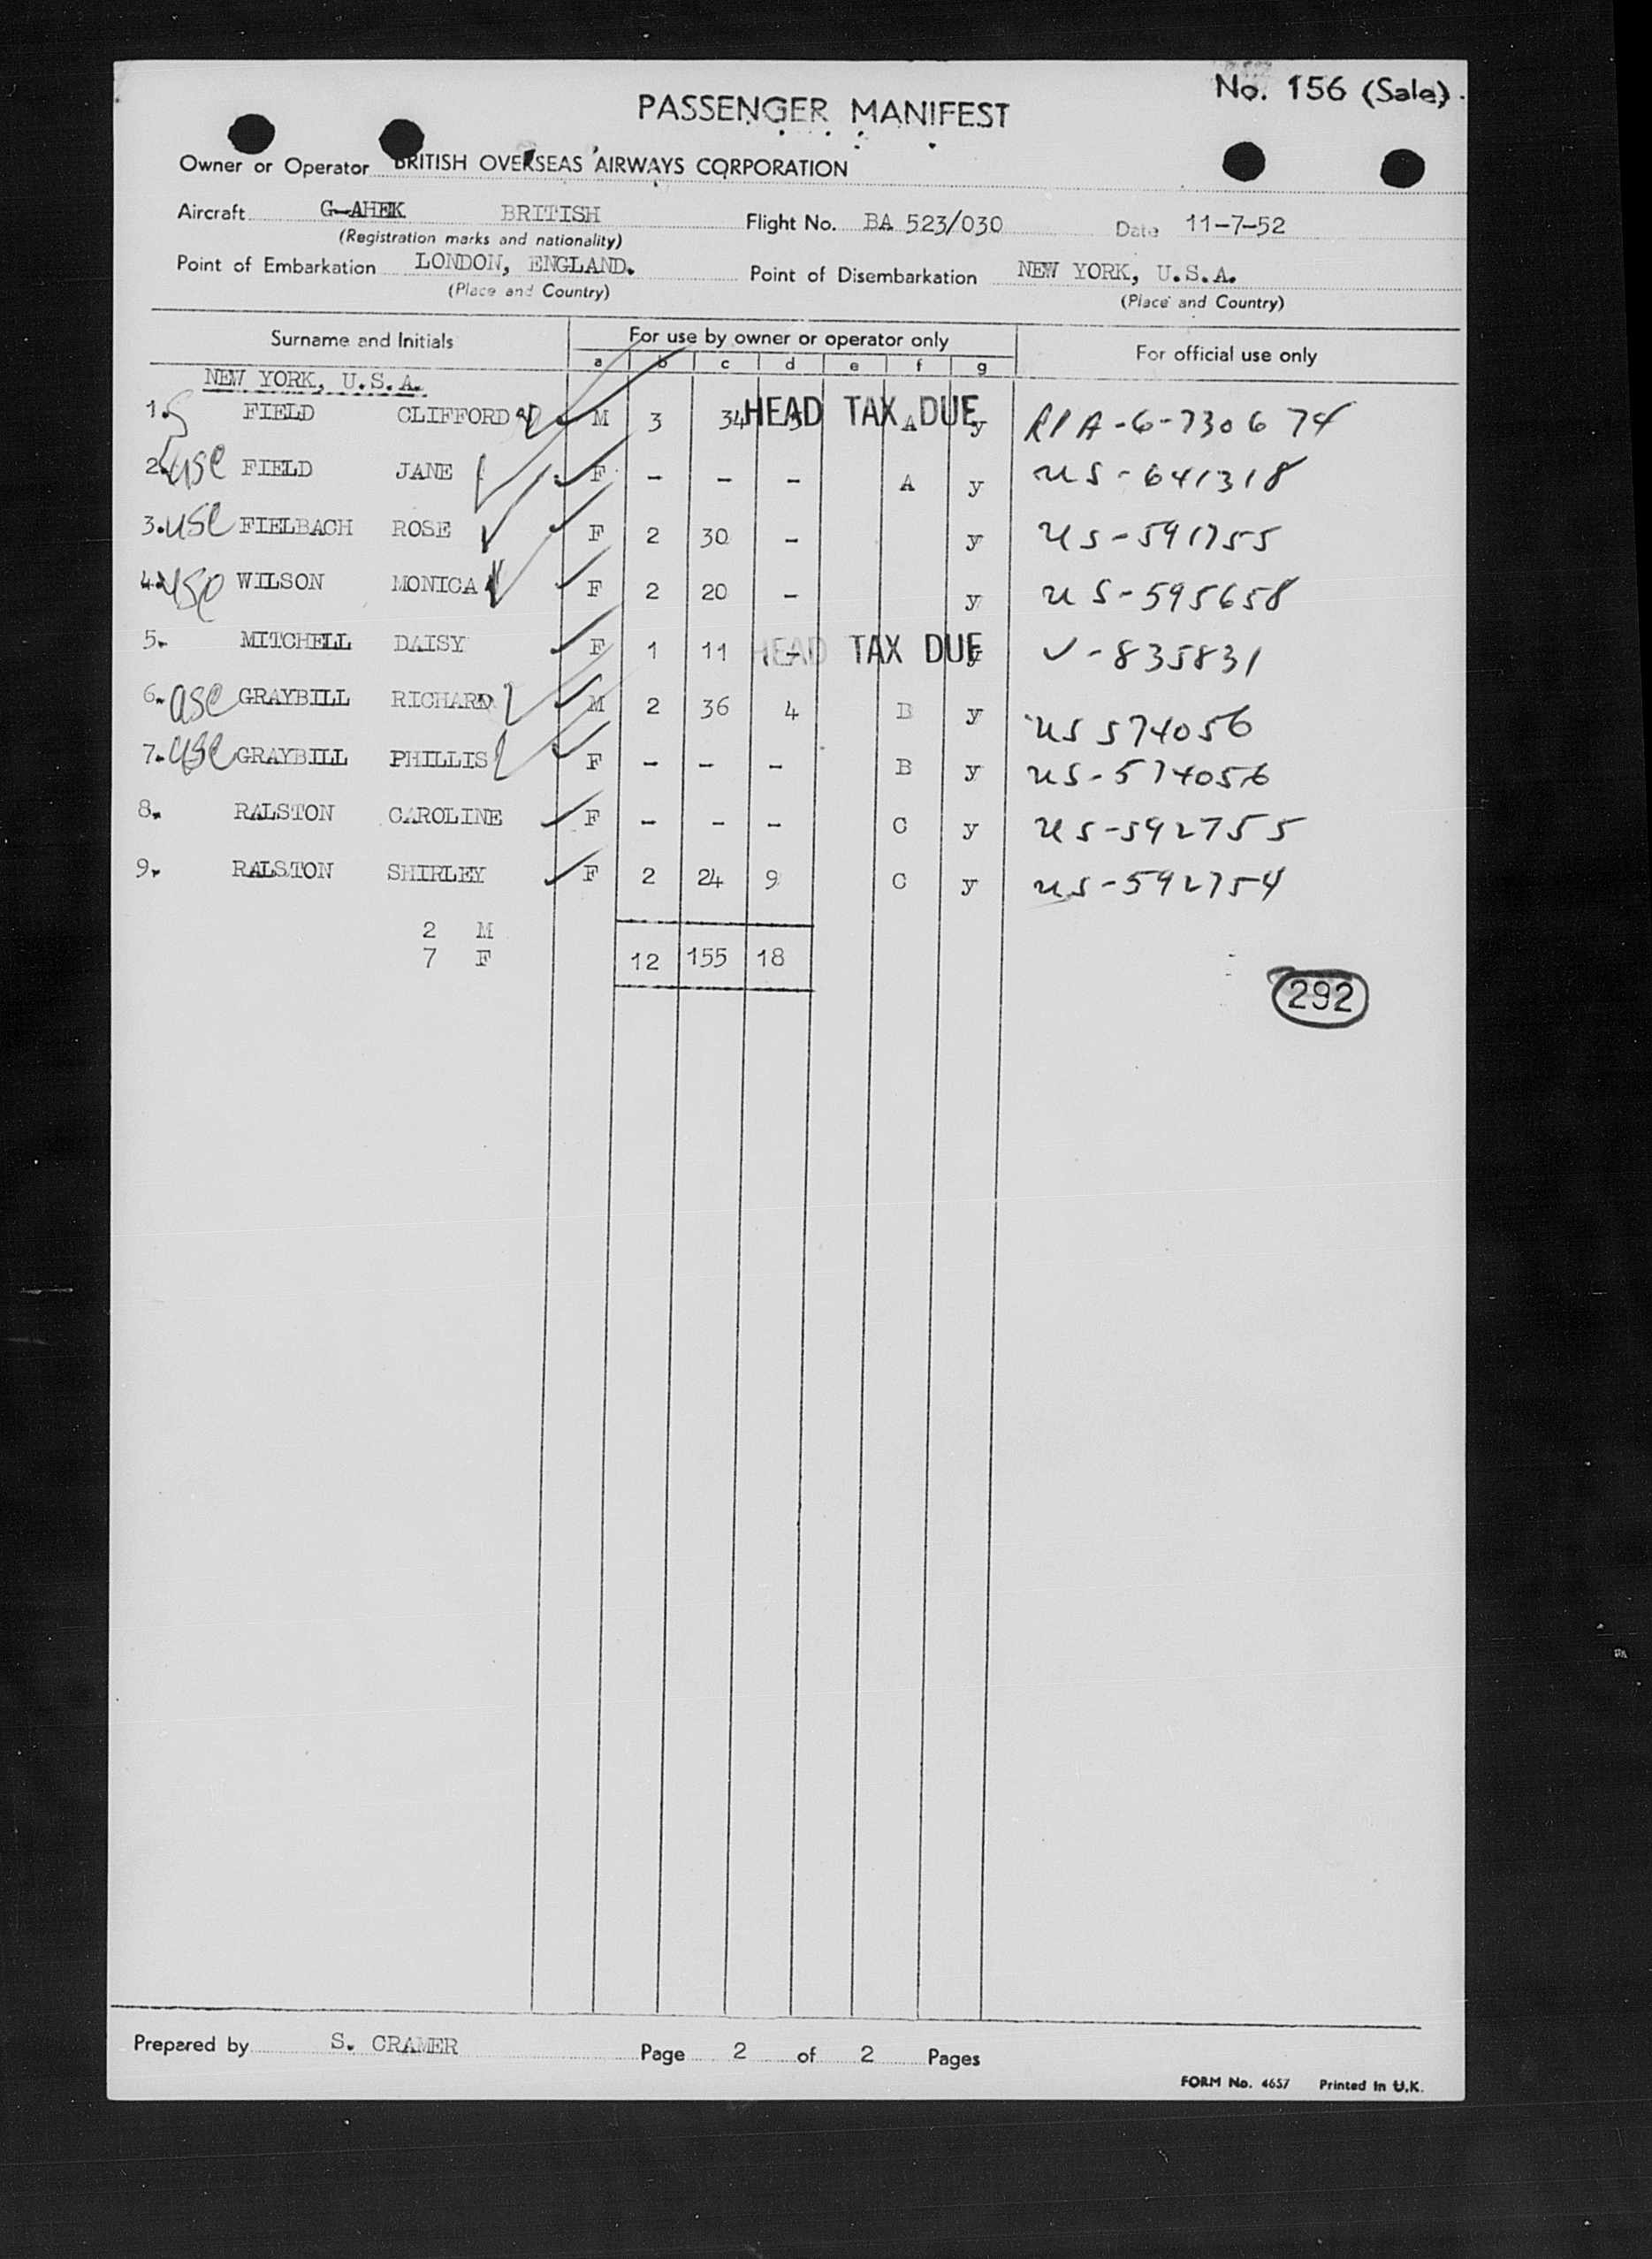 No. 156 (Sale).
PASSENGER MANIFEST
Owner or Operator BRITISH OVERSEAS AIRWAYS CORPORATION
Aircraft G-AHEK BRITISH Flight No. BA 523/030 Date 11-7-52
(Registration marks and nationality)
Point of Embarkation LONDON, ENGLAND. Point of Disembarkation NEW YORK, U.S.A.
(Place and Country) (Place and Country)
Surname and Initials For use by owner or operator only For official use only
a b c d e f g
NEW YORK, U.S.A.
1. FIELD CLIFFORD M 3 34 HEAD TAX DUE A y A-6-730674
2. USC FIELD JANE F - - - A y US-641318
3. USC FIELBACH ROSE F 2 30 - y US-591755
4. USC WILSON MONICA F 2 20 - y US-595658
5. MITCHELL DAISY F 1 11 - HEAD TAX DUE y V-835831
6. USC GRAYBILL RICHARD M 2 36 4 B y US 574056
7. USC GRAYBILL PHILLIS F - - - B y US-574056
8. RALSTON CAROLINE F - - - C y US-592755
9. RALSTON SHIRLEY F 2 24 9 C y US-592754
2 M
7 F 12 155 18
292
Prepared by S. CRAMER Page 2 of 2 Pages
FORM No. 4657 Printed in U.K.